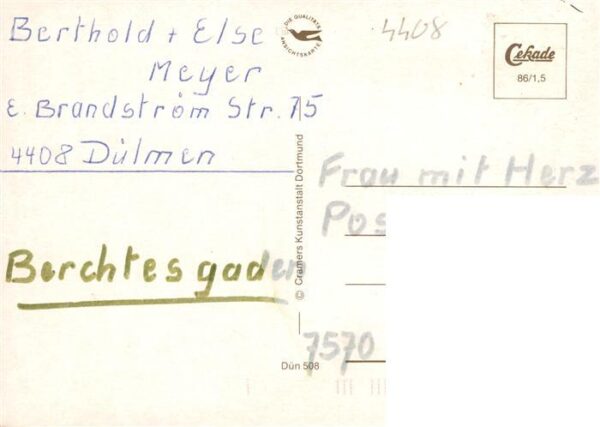 Berthold + Else
Meyer
E. Brandström Str. 75
4408 Dülmen
DIE QUALITÄTS
ANSICHTSKARTE
4408
Cekade
86/1,5
Frau mit Herz
Pos
Berchtesgaden
7570
© Cramers Kunstanstalt Dortmund
Dün 508